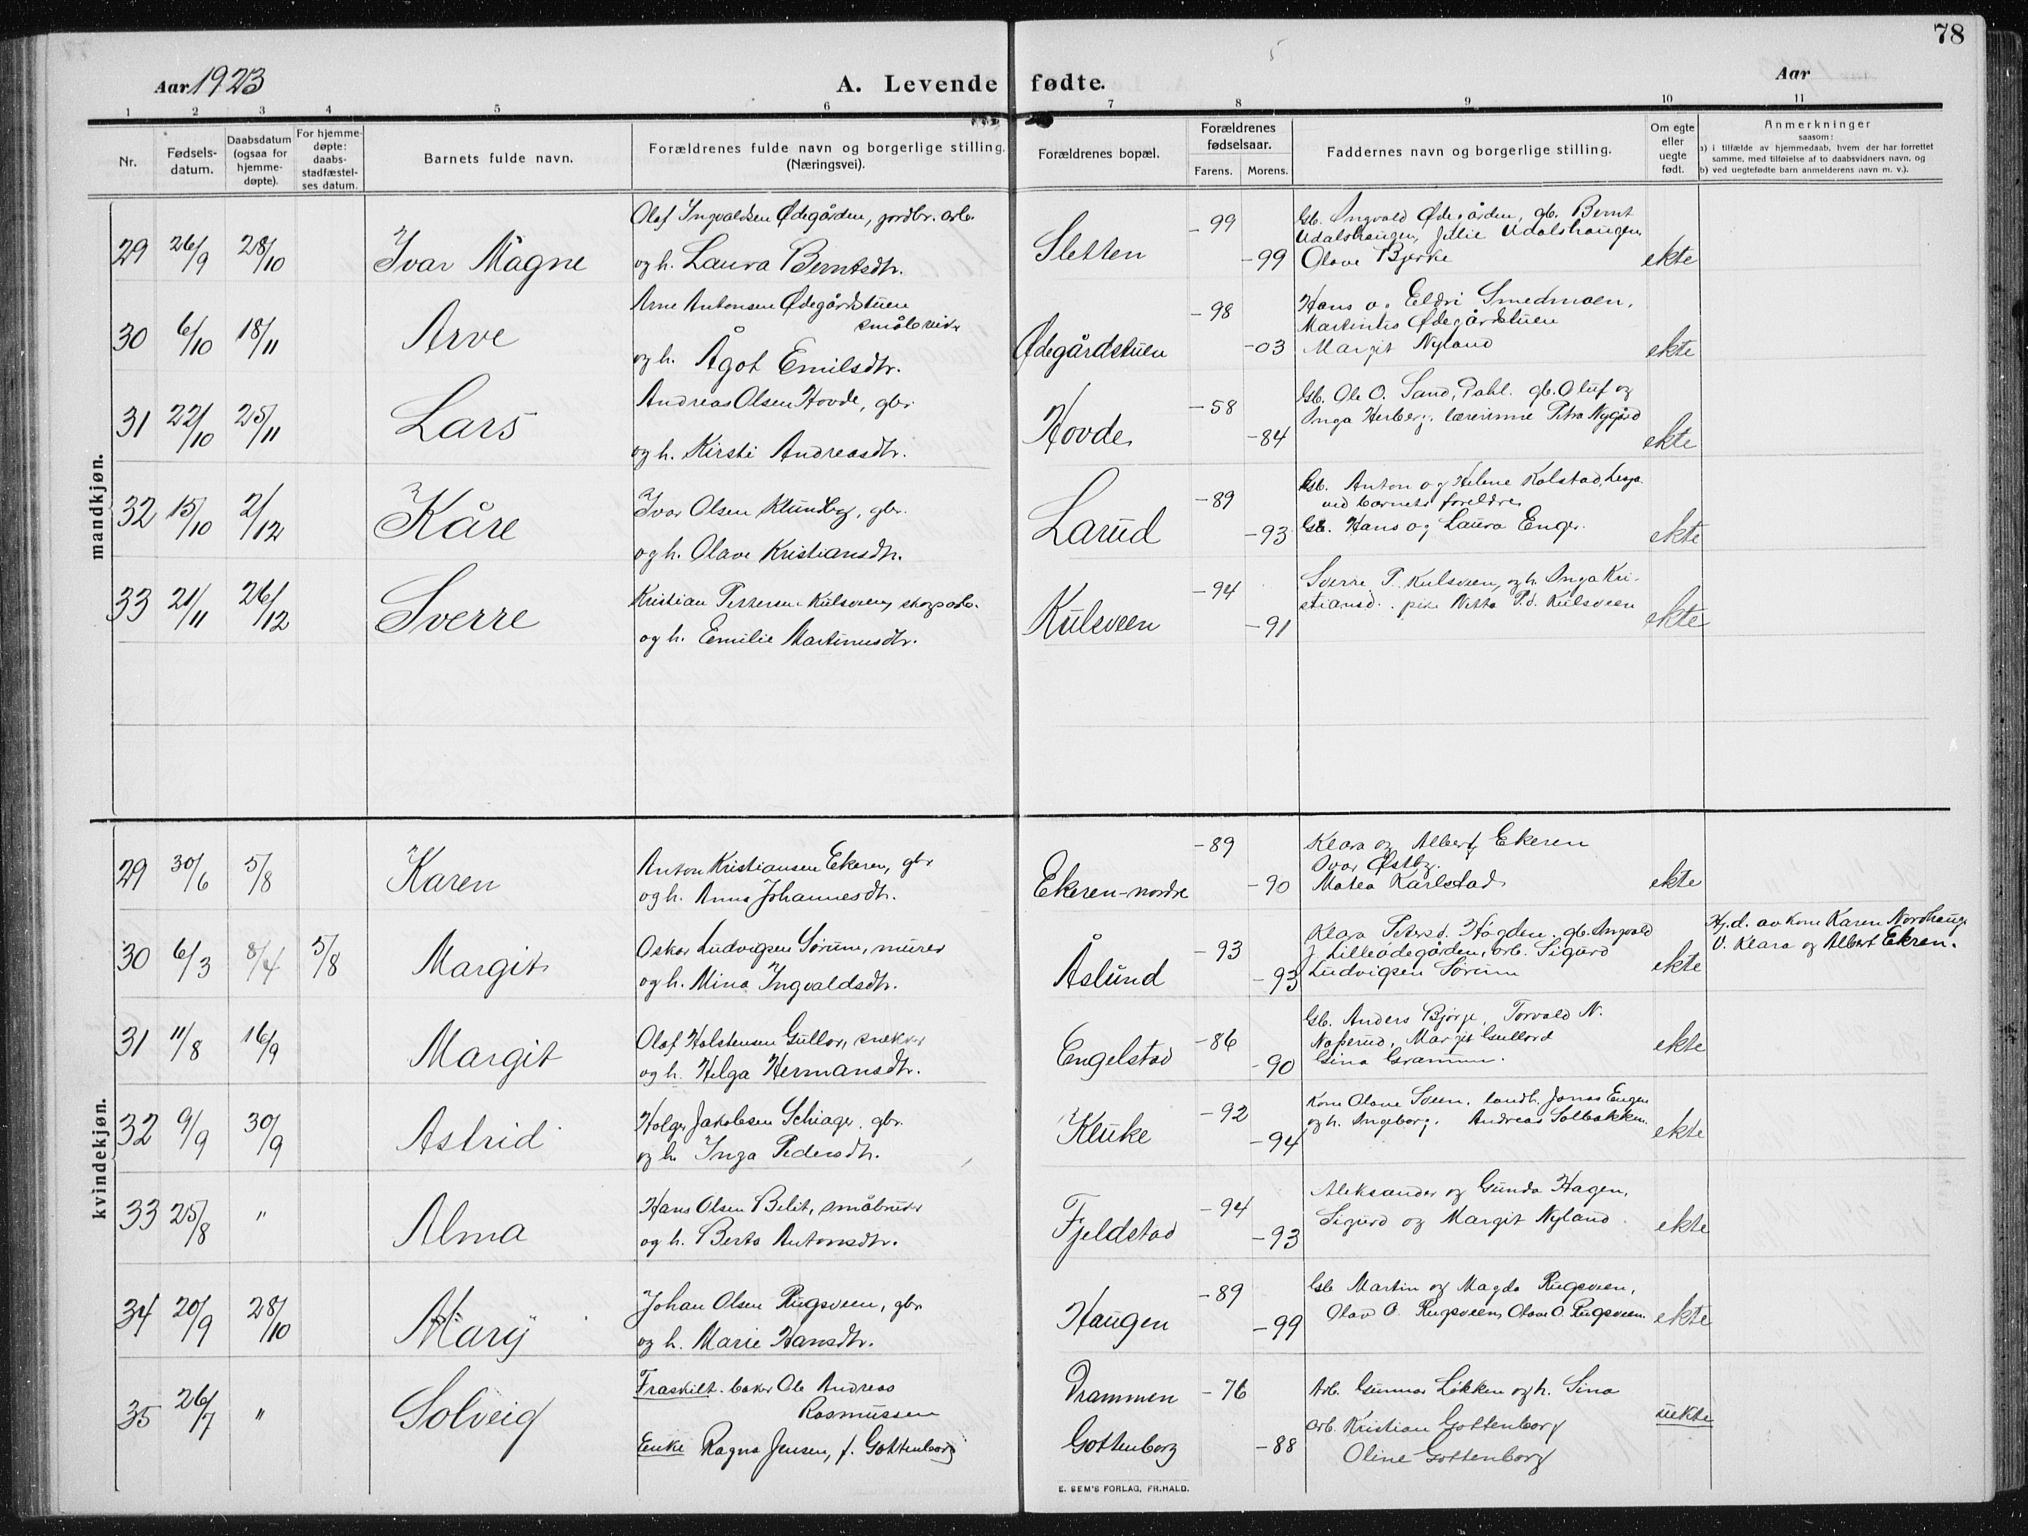 78
Aar 1923
A. Levende fødte.
Aar
1 2 3 4 5 6 7 8 9 10 11
Nr.
Fødsels-
datum.
Daabsdatum
(ogsaa for
hjemme-
døpte).
For hjemme-
døpte:
daabs-
stadfæstel-
ses datum.
Barnets fulde navn.
Forældrenes fulde navn og borgerlige stilling.
(Næringsvei).
Forældrenes bopæl.
Forældrenes
fødselsaar.
Farens. Morens.
Faddernes navn og borgerlige stilling.
Om egte
eller
uegte
født.
Anmerkninger
saasom:
a) i tilfælde av hjemmedaab, hvem der har forrettet
samme, med tilføielse af to daabsvidners navn, og
b) ved uegtefødte barn anmelderens navn m. v.).
mandkjøn.
29 26/9 28/10 Ivar Magne
Olaf Ingvaldsen Ødegården, jordbr. arb.
og h. Laura Berntsdtr.
Sletten -99 -99
Gb. Ingvald Ødegården, gb. Bernt
Udalshaugen, Jullie Udalshaugen
Olave Bjerke
ekte
30 6/10 18/11 Arve
Arne Antonsen Ødegårdstuen
småbruker
og h. Ågot Emilsdtr.
Ødegårdstuen -98 -03
Hans o. Eldri Smedmoen,
Martinius Ødegårdstuen
Margit Nyland
ekte
31 22/10 25/11 Lars
Andreas Olsen Hovde, gbr
og h. Kirsti Andreasdtr.
Hovde -58 -84
Gb. Ole O. Sand, Pahl. gb. Oluf og
Inga Herberg, lærerinne Petra Nygård
ekte
32 15/10 2/12 Kåre
Ivar Olsen Klundby, gbr.
og h. Olave Kristiansdtr.
Larud -89 -93
Gb. Anton og Helene Kolstad,
ved barnets foreldre
Gb. Hans og Laura Enger.
ekte
33 21/11 26/12 Sverre
Kristian Pettersen Kulsveen, skogsarb.
og h. Emilie Martinusdtr.
Kulsveen -94 -91
Sverre P. Kulsveen, og h. Inga Kri-
stiansd. pike Netta P.d. Kulsveen
ekte
kvindekjøn.
29 30/6 5/8 Karen
Anton Kristiansen Ekeren, gbr
og h. Anna Johannesdtr.
Ekeren-nordre -89 -90
Klara og Albert Ekeren
Ovar Østby.
Matea Karlstad
ekte
30 6/3 8/4 5/8 Margit
Oskar Ludvigsen Sørum, murer
og h. Mina Ingvaldsdtr.
Åslund -93 -93
Klara Petersd. Høgden. gb. Ingvald
J. Lilleødegården, arb. Sigurd
Ludvigsen Sørum
ekte
Hj.d. av kone Karen Nordhaug
V. Klara og Albert Ekren.
31 11/8 16/9 Margit
Olaf Holstensen Gullor, snekker
og h. Helga Hermansdtr.
Engelstad -86 -90
Gb. Anders Bjørge, Torvald N.
Naperud, Margit Gullord
Gina Gramm.
ekte
32 9/9 30/9 Astrid
Holger Jakobsen Schiager, gbr.
og h. Inga Pedersdtr.
Kluke -92 -94
Kone Olave Sveen, landh. Jonas Engen
og h. Ingeborg. Andreas Solbakken
ekte
33 25/8 " Alma
Hans Olsen Belit, småbruker
og h. Berta Antonsdtr.
Fjeldstad -94 -93
Aleksander og Gunda Hagen,
Sigurd og Margit Nyland.
ekte
34 20/9 28/10 Mary
Johan Olsen Rugsveen, gbr
og h. Marie Hansdtr.
Haugen -89 -99
Gb Martin og Magda Rugsveen,
Olav O. Rugsveen, Olava O. Rugsveen.
ekte
35 26/7 " Solveig
Fraskilt. baker Ole Andreas
Rasmussen
Enke Ragna Jensen, f. Gottenborg
Drammen -76
Gottenborg -88
Arb. Gunnar Løkken og h. Sina
arb. Kristian Gottenborg
Oline Gottenborg
uekte
E. SEM'S FORLAG, FR.HALD.